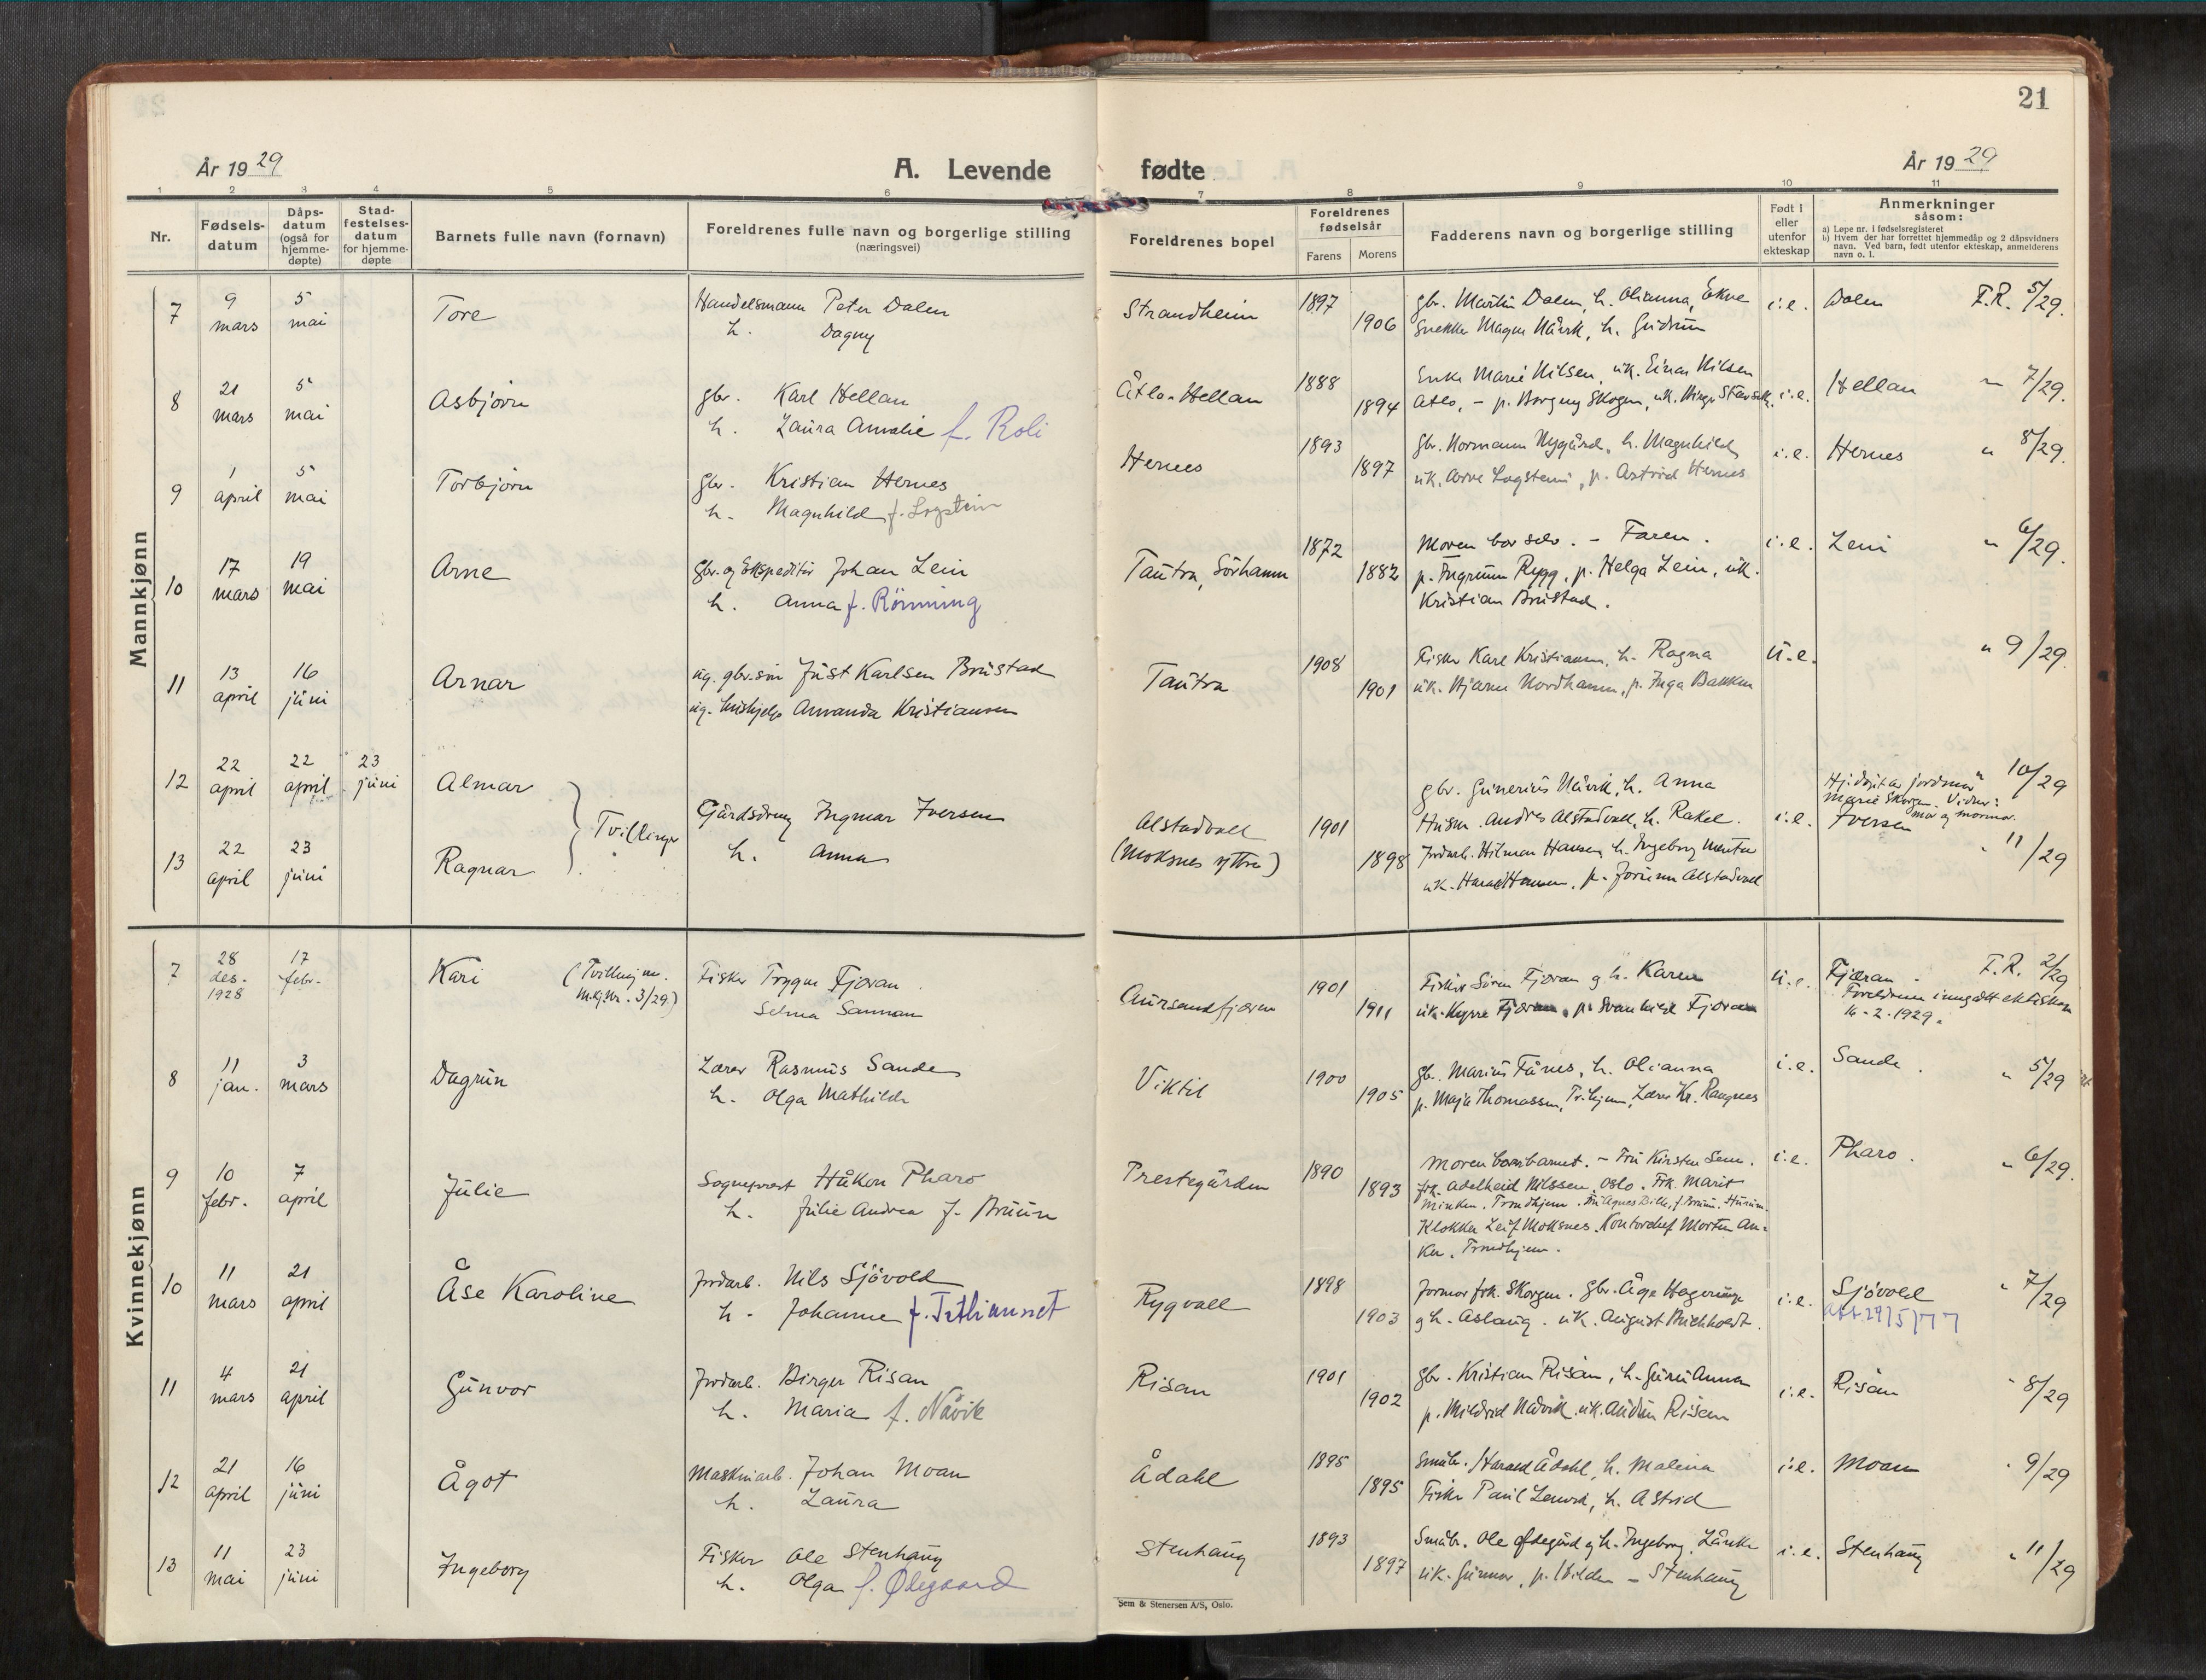 21
År 1929
A. Levende fødte
År 1929
1 2 3 4 5 6 7 8 9 10 11
Nr.
Fødsels-
datum
Dåps-
datum
(også for
hjemme-
døpte)
Stad-
festelses-
datum
for hjemme-
døpte
Barnets fulle navn (fornavn)
Foreldrenes fulle navn og borgerlige stilling
(næringsvei)
Foreldrenes bopel
Foreldrenes
fødselsår
Farens Morens
Fadderens navn og borgerlige stilling
Født i
eller
utenfor
ekteskap
Anmerkninger
såsom:
a) Løpe nr. i fødselsregisteret
b) Hvem der har forrettet hjemmedåp og 2 dåpsvidners
navn. Ved barn, født utenfor ekteskap, anmelderens
navn o. l.
Mannkjønn
7 9 mars 5 mai Tore
Handelsmann Peter Dalen
h. Dagny
Strandheim 1897 1906
gbr. Martin Dalen, h. Olianna, Ekne
Snekker Magne Nåvik, h. Gudrun
i.e. Dalen F.R. 5/29.
8 21 mars 5 mai Asbjørn
gbr. Karl Hellan
h. Laura Amalie f. Roli
Åtlo-Hellan 1888 1894
Enke Marie Nilsen, uk. Einar Nilsen
Åtlo, - p. Borgny Skogen, uk.
i.e. Hellan " 7/29.
9 1 april 5 mai Torbjørn
gbr. Kristian Hernes
h. Magnhild f. Logstein
Hernes 1893 1897
gbr. Normann Nygård, h. Magnhild
uk. Arve Logstein, p. Astrid Hernes
i.e. Hernes " 8/29.
10 17 mars 19 mai Arne
gbr. og Ekspeditør Johan Lein
h. Anna f. Rönning
Tautra, Sörhamn 1872 1882
Moren bar selv. - Faren.
p. Ingrunn Rygg, p. Helga Lein, uk.
Kristian Brustad.
i.e. Lein " 6/29.
11 13 april 16 juni Arnar
ug. gbr.sön Just Karlsen Brustad
ug. hushjelp Amanda Kristiansen
Tautra 1908 1901
Fisker Karl Kristiansen, h. Ragna
uk. Bjarne Nordhamn, p. Inga Bakken
u.e. " 9/29.
12 22 april 22 april 23 juni Almar
13 22 april 23 juni Ragnar
Tvillinger
Gårdsdreng Ingmar Iversen
h. Anna
Alstadvall
(Moksnes yttre)
1901 1898
gbr. Gunerius Nåvik, h. Anna
Husm. Andres Alstadvall, h. Rakel.
Jordarb. Hilmar Hansen, h. Ingeborg
uk. Harald Hansen, p. Jorunn Alstadvall
i.e.
Hj.døpt av jordmor
Marie Skorgen. Vidner:
mor og mormor.
Iversen
" 10/29
" 11/29
Kvinnekjønn
7 28 des. 1928 17 febr. Kari
(Tvilling m.
m.kj. nr. 3/29.)
Fisker Trygve Fjæran
Selma Sannan
Aursandfjæren 1901 1911
Fisker Sören Fjæran og h. Karen
uk. Kyrre Fjæran, p. Svanhild Fjæran
u.e. Fjæran. F.R. 2/29
Foreldrene inngått ekteskap
16-2-1929.
8 11 jan. 3 mars Dagrun
Lærer Rasmus Sande
h. Olga Mathilde
Viktil 1900 1905
gbr. Marius Fånes, h. Olianna
p. Maja Thomassen, Tr.hjem, Lærer Kr. Raagnes
i.e. Sande. " 5/29
9 10 febr. 7 april Julie
Sogneprest Håkon Pharo
h. Julie Andrea f. Bruun
Prestegården 1890 1893
Moren bar barnet. - Fru Kirsten Sem.
frk. Adelheid Nilssen, Oslo. Frk. Marit
Minken, Trondhjem. Fru Agnes Bille, f. Bruun. Hurum.
Klokker Leif Moksnes. Kontorchef Morten An-
ker, Trondhjem.
i.e. Pharo. " 6/29.
10 11 mars 21 april Åse Karoline
Jordarb. Nils Sjövold
h. Johanne f. Tetlianset
Rygvall 1898 1903
Jormor frk. Skorgen. gbr. Åge
og h. Aslaug. uk. August Buchholdt.
i.e. Sjövold " 7/29
att. 29/5/77
11 4 mars 21 april Gunvor
Jordarb. Birger Risan
h. Maria f. Nåvik
Risan 1901 1902
gbr. Kristian Risan, h. Guru Anna
p. Mildrid Nåvik, uk. Audun Risan
i.e. Risan " 8/29
12 21 april 16 juni Ågot
Maskinarb. Johan Moan
h. Laura
Ådahl 1895 1895
Småbr. Harald Ådahl, h. Malena
Fisker Paul Lervik, h. Astrid
i.e. Moan " 9/29
13 11 mai 23 juni Ingeborg
Fisker Ole Stenhaug
h. Olga f. Ølegaard
Stenhaug 1893 1897
Småbr. Ole Ødegård og h. Ingeborg, Lånke
uk. Gunnar, p. Hilda - Stenhaug
i.e. Stenhaug " 11/29
Sem & Stenersen A/S, Oslo.